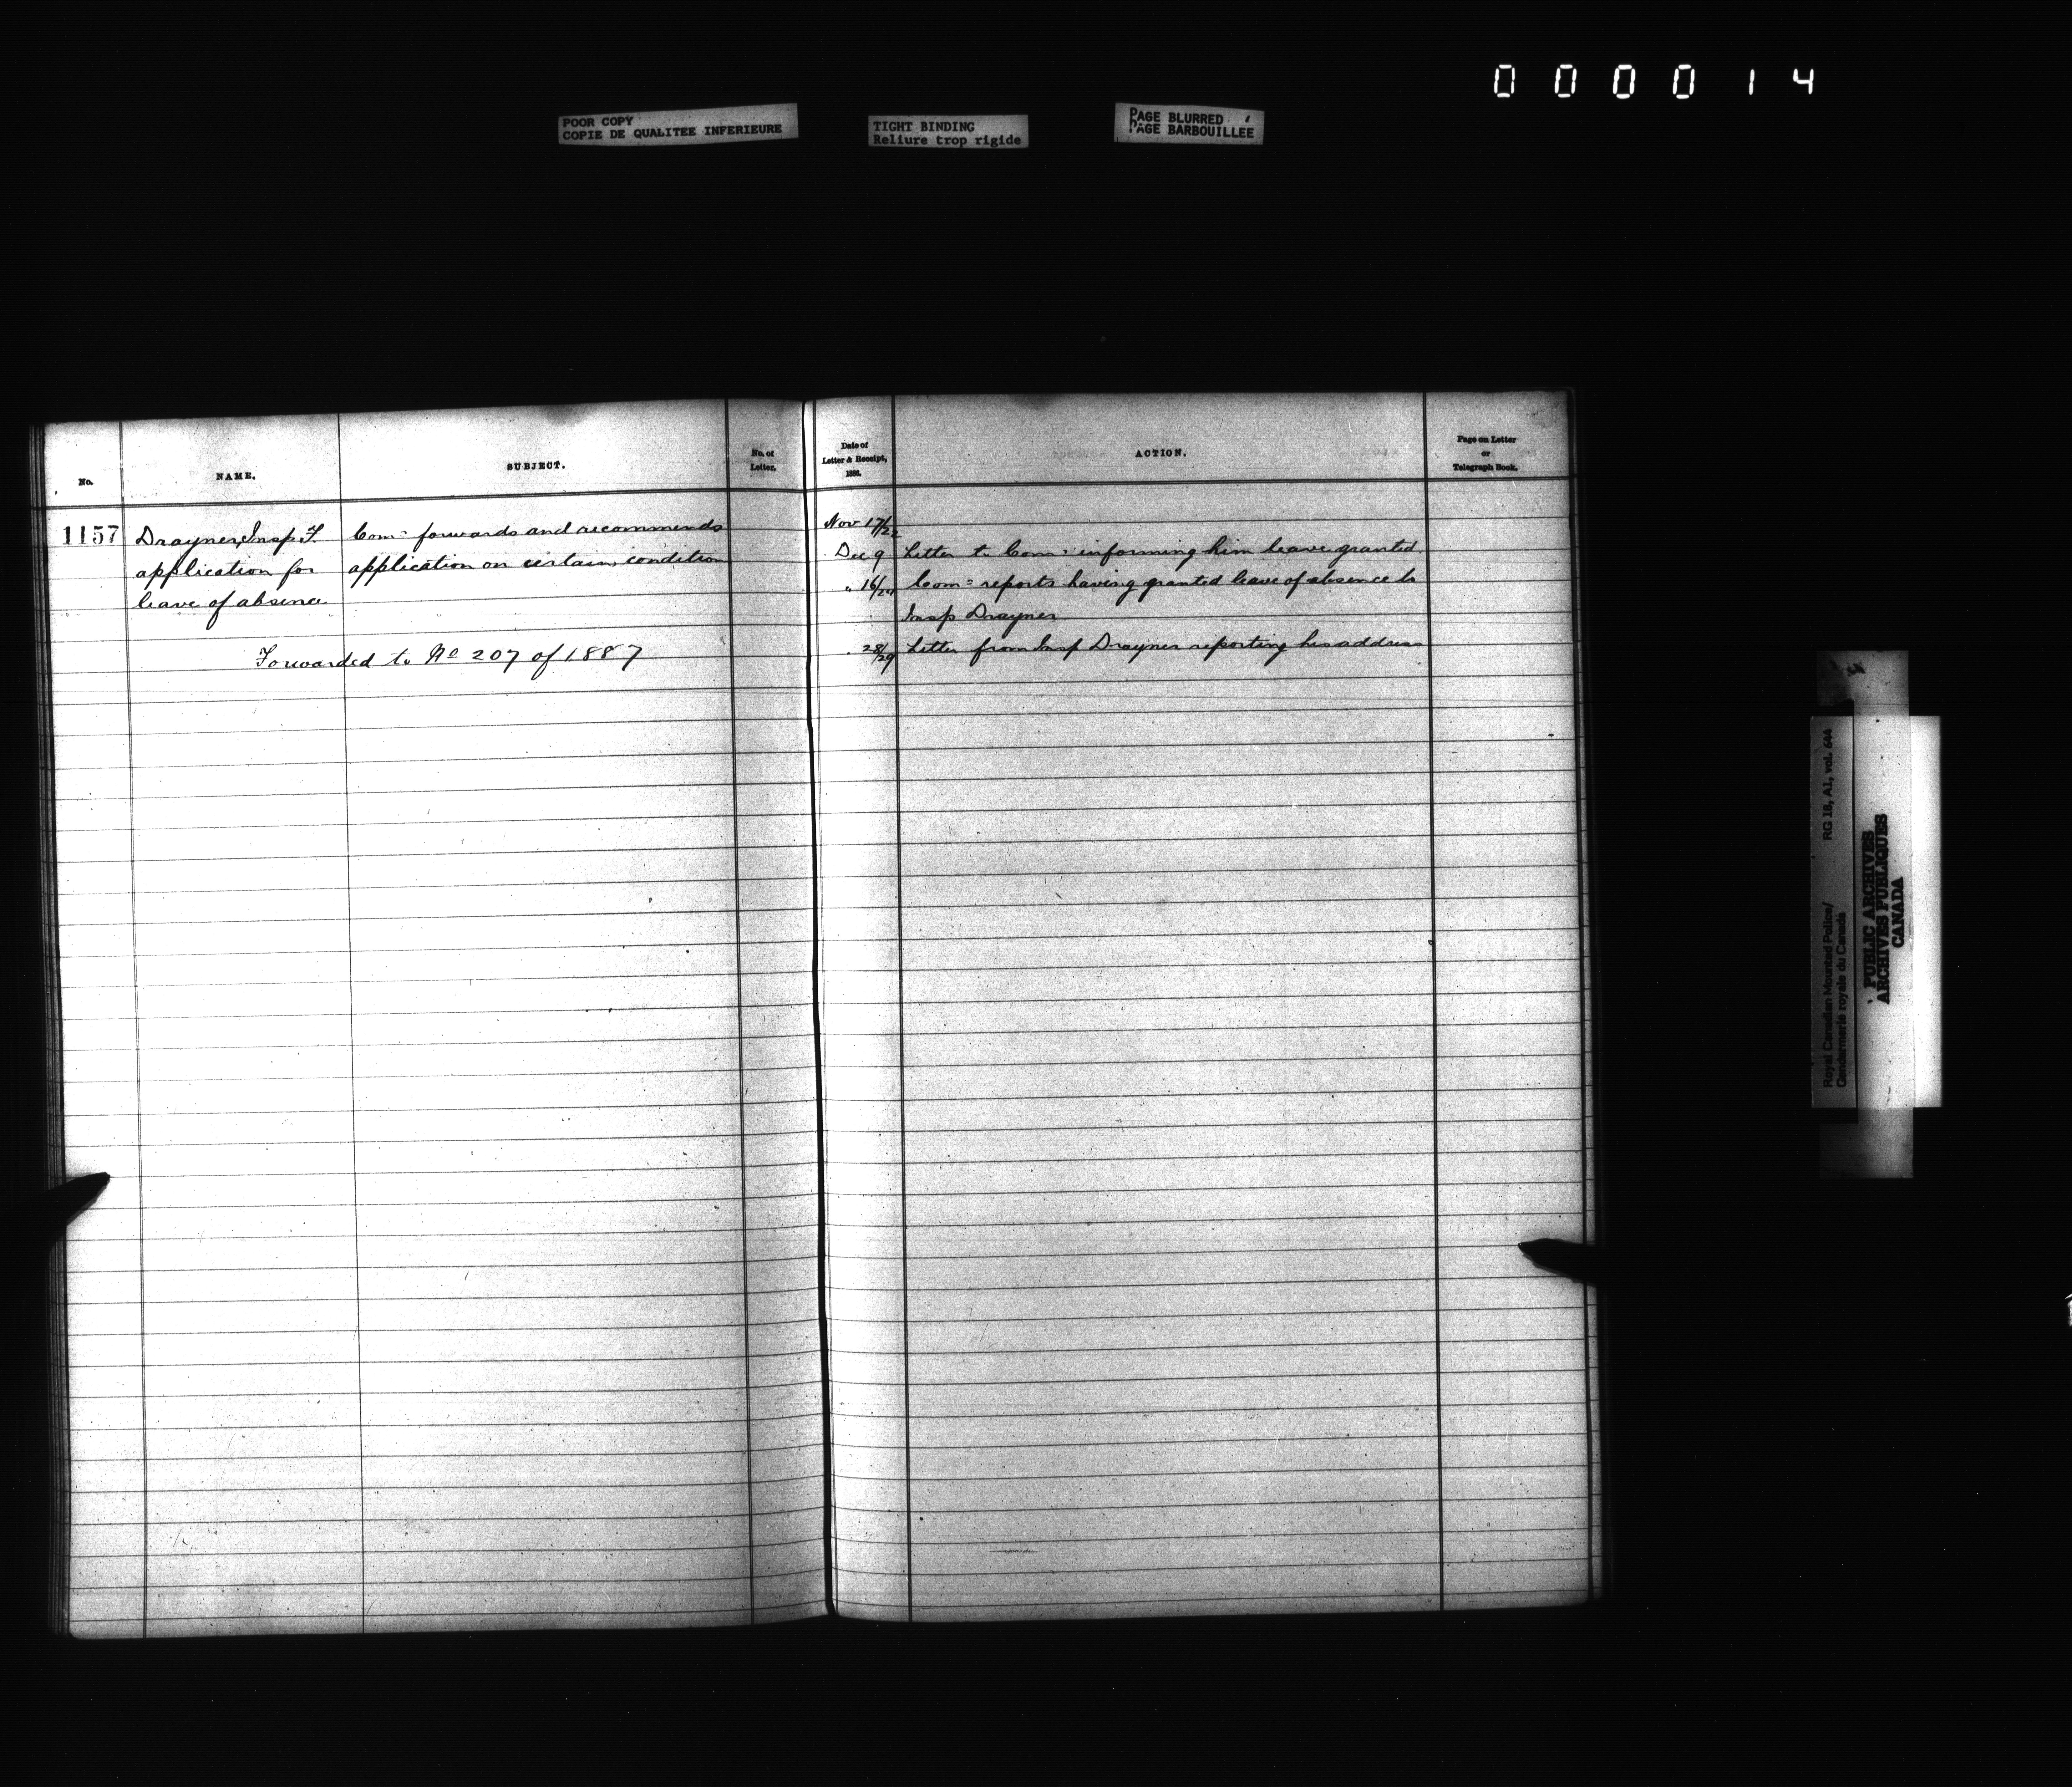 000014
POOR COPY
COPIE DE QUALITEE INFERIEURE
TIGHT BINDING
Reliure trop rigide
PAGE BLURRED
PAGE BARBOUILLEE
No.
NAME.
SUBJECT.
No. of
Letter.
1157
Drayner, Insp. F.
application for
leave of absence
Com: forwards and recommends
application on certain condition
Forwarded to No 207 of 1887
Date of
Letter & Receipt,
1886.
ACTION.
Page on Letter
or
Telegraph Book.
Nov 17/22
Dec 9 Letter to Com: informing him leave granted
" 16/24 Com= reports having granted leave of absence to
Insp Drayner
28/29 Letter from Insp Drayner reporting his address
Royal Canadian Mounted Police/
Gendarmerie royale du Canada
RG 18, A1, vol. 644
PUBLIC ARCHIVES
ARCHIVES PUBLIQUES
CANADA